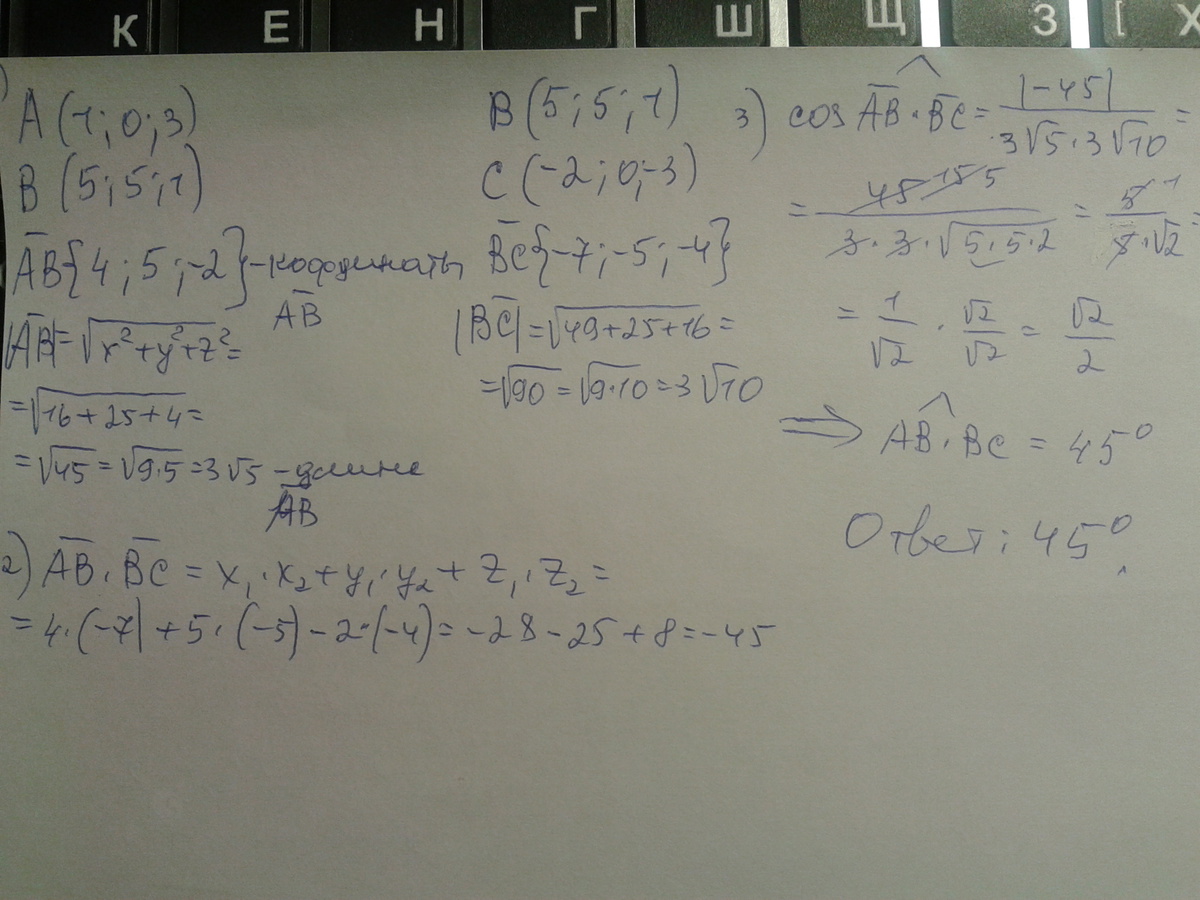 К Е Н Г Ш Щ З [ Х
)
A (1; 0; 3)
B (5; 5; 1)
A̅B̅{4; 5; -2} - координаты
A̅B̅
|A̅B̅| = √(x² + y² + z²) =
= √(16 + 25 + 4) =
= √45 = √(9·5) = 3√5 - длина
A̅B̅
B (5; 5; 1)
C (-2; 0; -3)
B̅C̅{-7; -5; -4}
|B̅C̅| = √(49 + 25 + 16) =
= √90 = √(9·10) = 3√10
2) A̅B̅ · B̅C̅ = x₁·x₂ + y₁·y₂ + z₁·z₂ =
= 4·(-7) + 5·(-5) - 2·(-4) = -28 - 25 + 8 = -45
3) cos A̅B̅ ^ · B̅C̅ = |-45| / (3√5 · 3√10) =
= 45 15 5 / (3 · 3 · √(5·5·2)) = 5 1 / (5·√2) =
= 1/√2 · √2/√2 = √2/2
⇒ AB ^ · BC = 45°
Ответ: 45°.